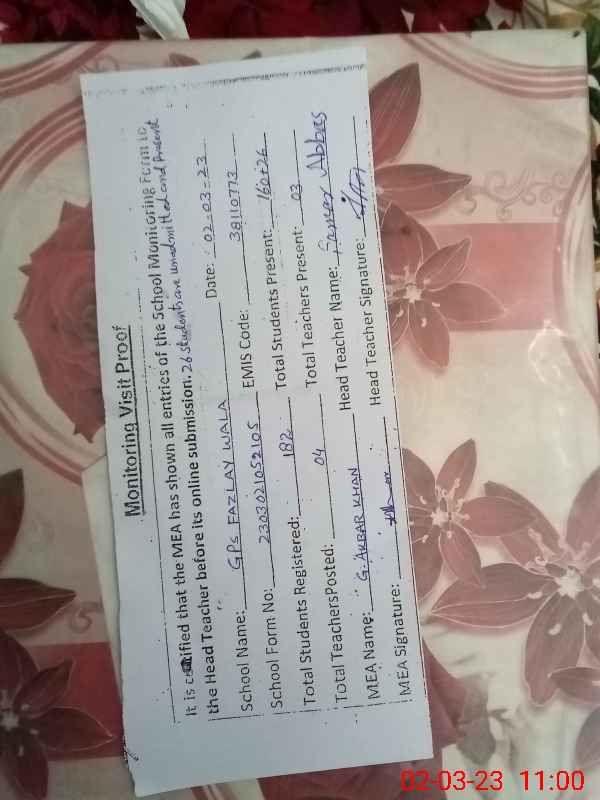 Monitoring Visit Proof
It is certified that the MEA has shown all entries of the School Monitoring Form to
the Head Teacher before its online submission. 26 students are unadmitted and Present
School Name: GPS FAZLAY WALA Date: 02-03-23
School Form No: 2303021052105 EMIS Code: 38110773
Total Students Registered: 182 Total Students Present: 160+26
Total TeachersPosted: 04 Total Teachers Present: 03
MEA Name: G. AKBAR KHAN Head Teacher Name: Abbas
MEA Signature: Head Teacher Signature:
02-03-23 11:00